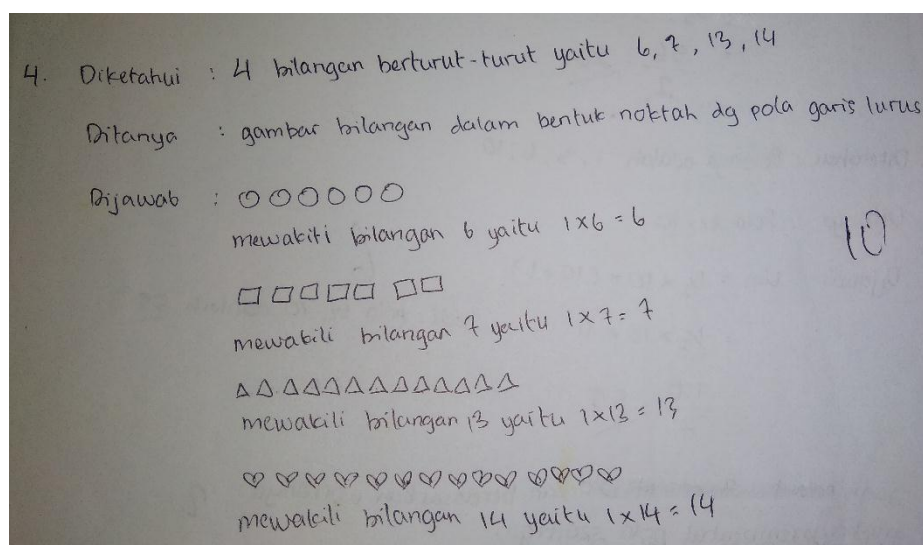 4. Diketahui : 4 bilangan berturut-turut yaitu 6, 7, 13, 14
Ditanya : gambar bilangan dalam bentuk noktah dg pola garis lurus
Dijawab :
mewakili bilangan 6 yaitu 1x6 = 6
10
mewakili bilangan 7 yaitu 1 x 7 = 7
mewakili bilangan 13 yaitu 1x13 = 13
mewakili bilangan 14 yaitu 1x14 = 14